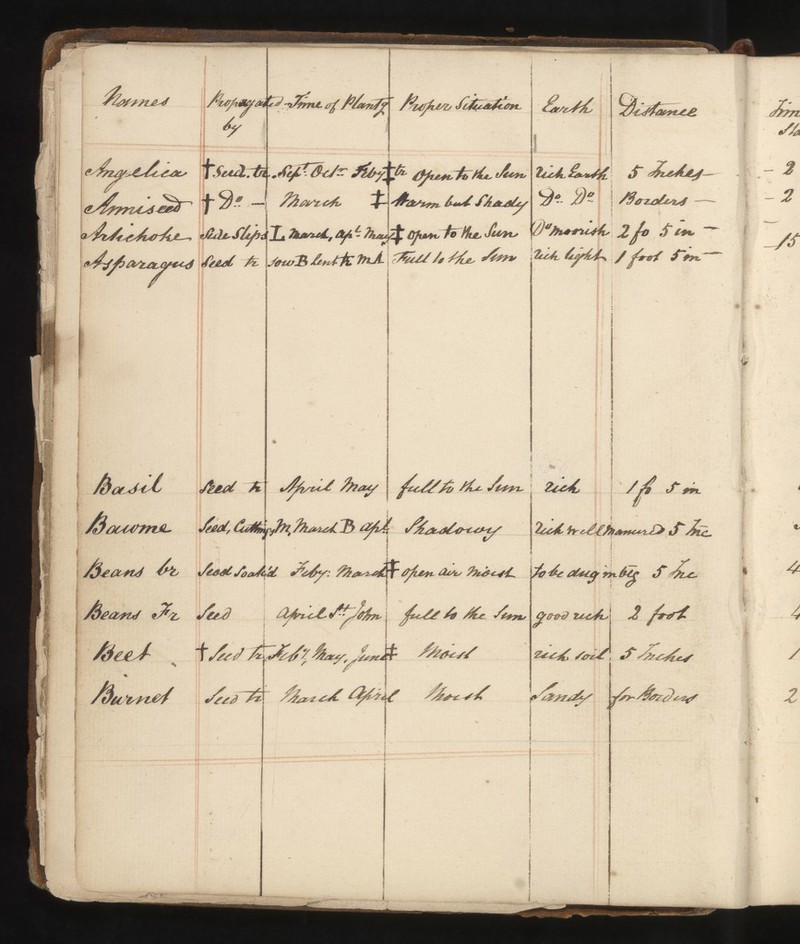 Names Propagated Time of Plantg Proper Situation Earth Distance
by
Angelica † Seed. tr Sept. Octr Feby ‡ tr Open to the Sun rich Earth 5 Inches —
Anniseed † Do — March ‡ Warm but Shady Do Do Borders —
Artichoke Side Slips L March, apl May ‡ open to the Sun Do moorish 2 fo 5 in —
Asparagus Seed tr sow B Lent tr Full to the Sun rich light 1 foot 5 in —
Basil Seed tr April May full to the Sun rich 1 fo 5 in
Bawme Seed, Cuttings M, March B apl Shadowy rich well manured 5 Inc
Beans br Seed Soak'd Feby: March ‡ open air moist to be dug in 5 Inc
Beans Fr Seed April St John full to the Sun good rich 2 foot
Beet † Seed tr Feby, May, June ‡ Moist rich soil 5 Inches
Burnet Seed tr March April Moist Sandy for Borders
- 2
- 2
- 15
4
4
1
2